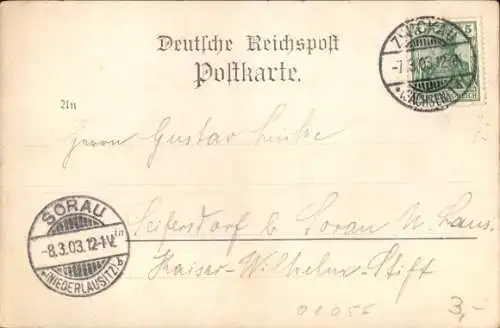 Deutsche Reichspost
Postkarte.
ZWICKAU
5
-7.3.03.12-
*(SACHSEN)
An
Herrn Gustav
in
SORAU
-8.3.03.12-1V.
*(NIEDERLAUSITZ)
Seifersdorf b/ Sorau N. Laus.
Kaiser-Wilhelm-Stift
01056
3,-